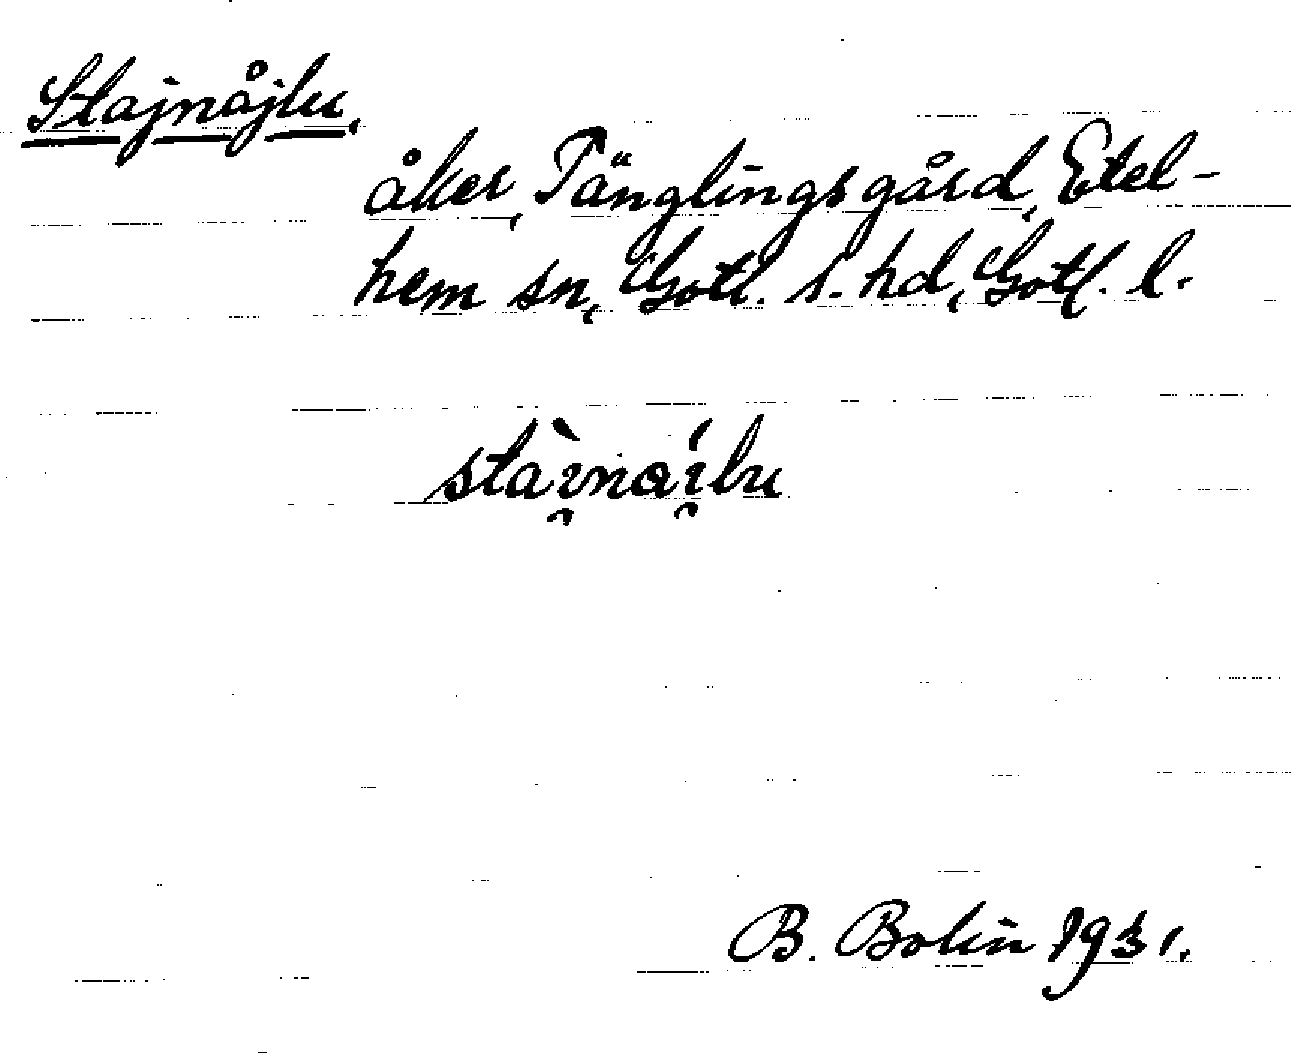 Stajnåjlu,
åker, Tänglings gård, Etel-
hem sn, Gotl. s. hd, Gotl. l.
sta`i̯nɑ´i̯lu
B. Bolin 1931.